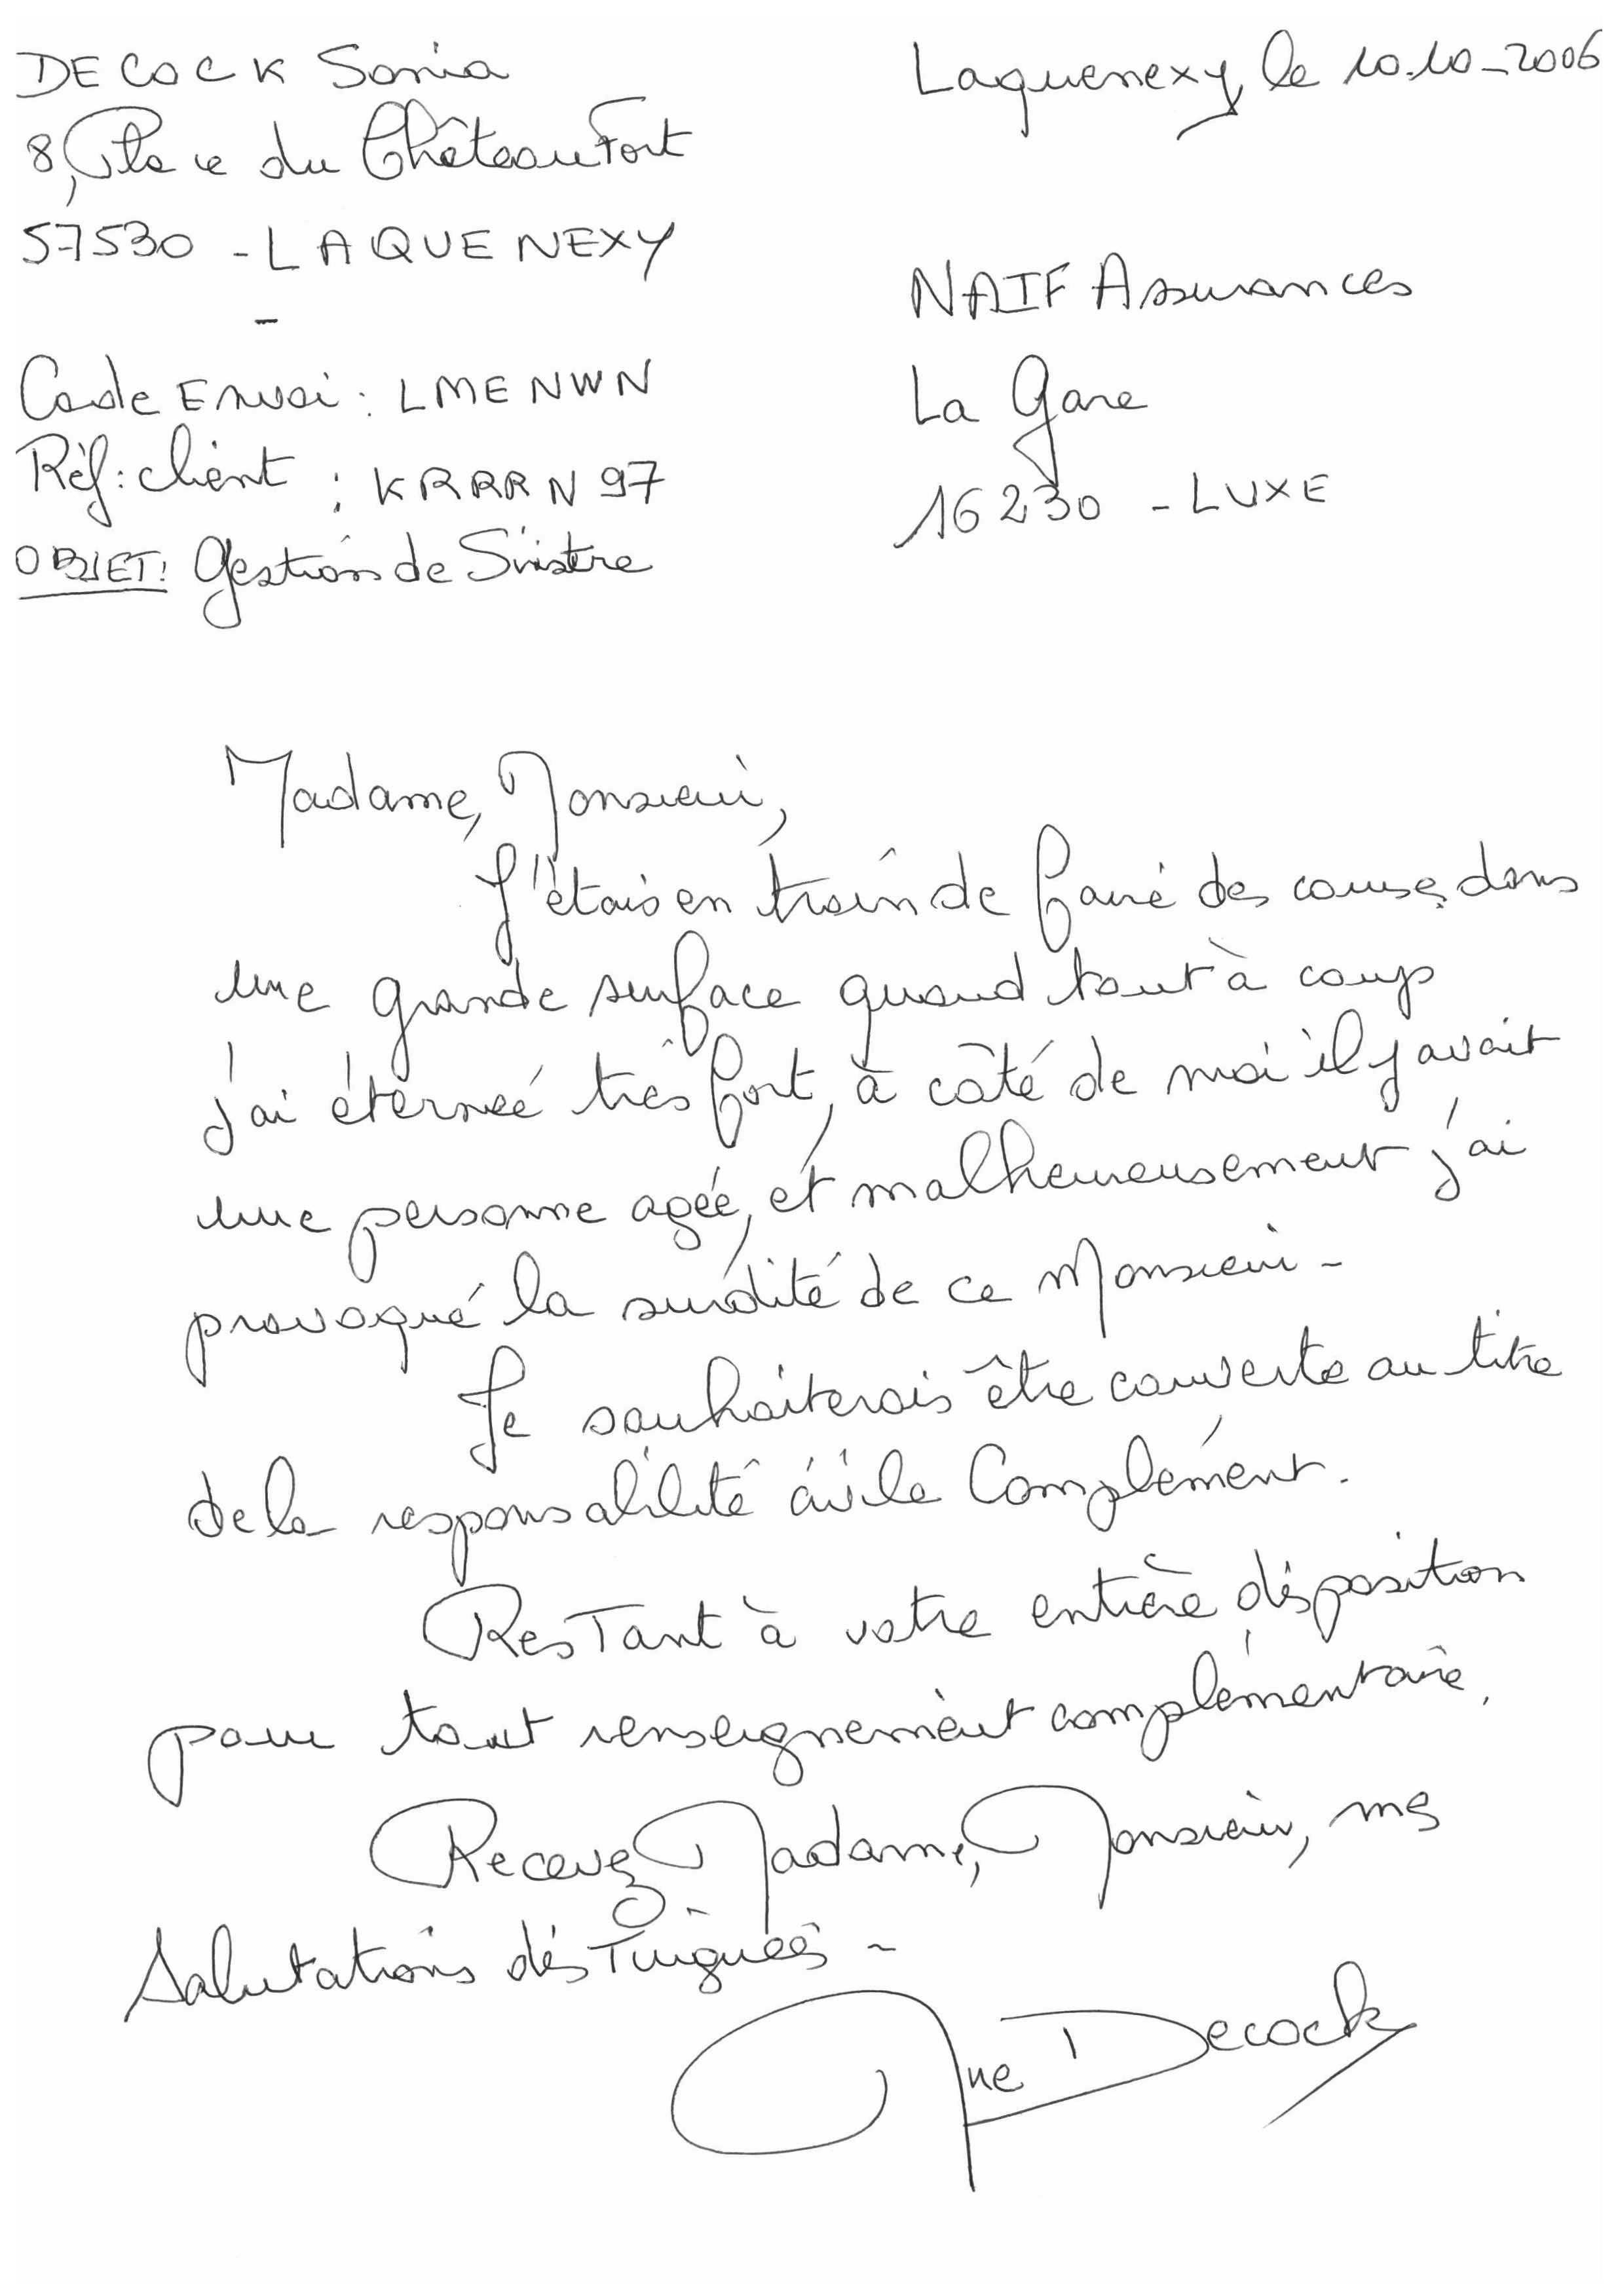 DECOCK Sonia
8, Place du Château Fort
57530 - LAQUENEXY
-
Code Envoi : LMENWN
Réf: client : KRRRN97
OBJET: Gestion de Sinistre
Laquenexy, le 10.10-2006
NAIF Assurances
La Gare
16230 - LUXE
Madame, Monsieur,
J'étais en train de faire des courses dans
une grande surface quand tout à coup
j'ai éternué très fort, à côté de moi il y avait
une personne agée, et malheureusement j'ai
provoqué la surdité de ce Monsieur -
Je souhaiterais être couverte au titre
de la responsabilité civile Complément.
Restant à votre entière disposition
pour tout renseignement complémentaire.
Recevez Madame, Monsieur, mes
Salutations distinguées -
Mme Decock